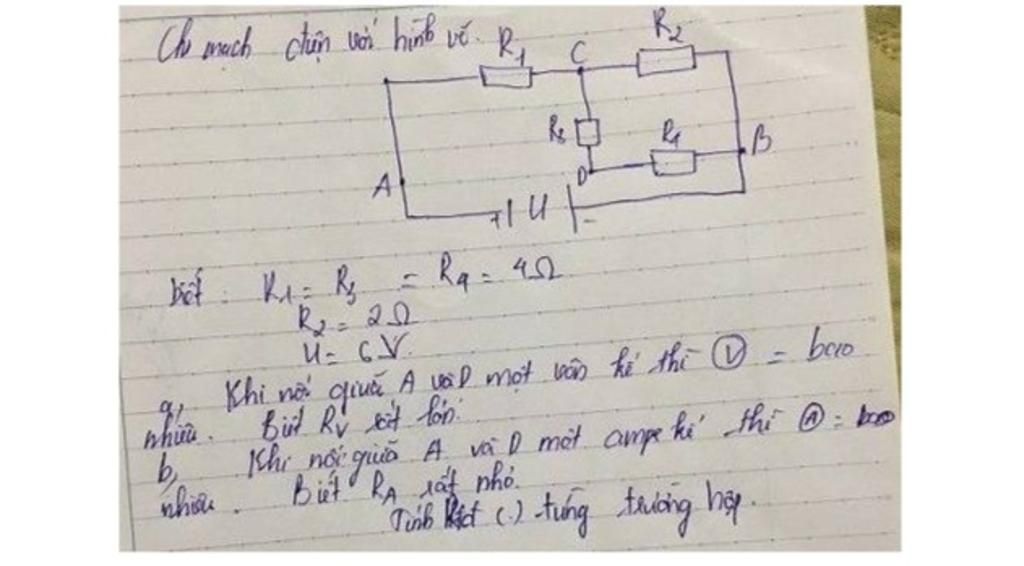 Cho mạch điện với hình vẽ.
R1 C R2
R3 R4
D B
A
+ U -
biết : R1 = R3 = R4 = 4Ω
R2 = 2Ω
U = 6V.
a, Khi nối giữa A và D một vôn kế thì Ⓥ = bao
nhiêu. Biết RV rất lớn.
b, Khi nối giữa A và D một ampe kế thì Ⓐ = bao
nhiêu. Biết RA rất nhỏ.
Tính (.) từng trường hợp.